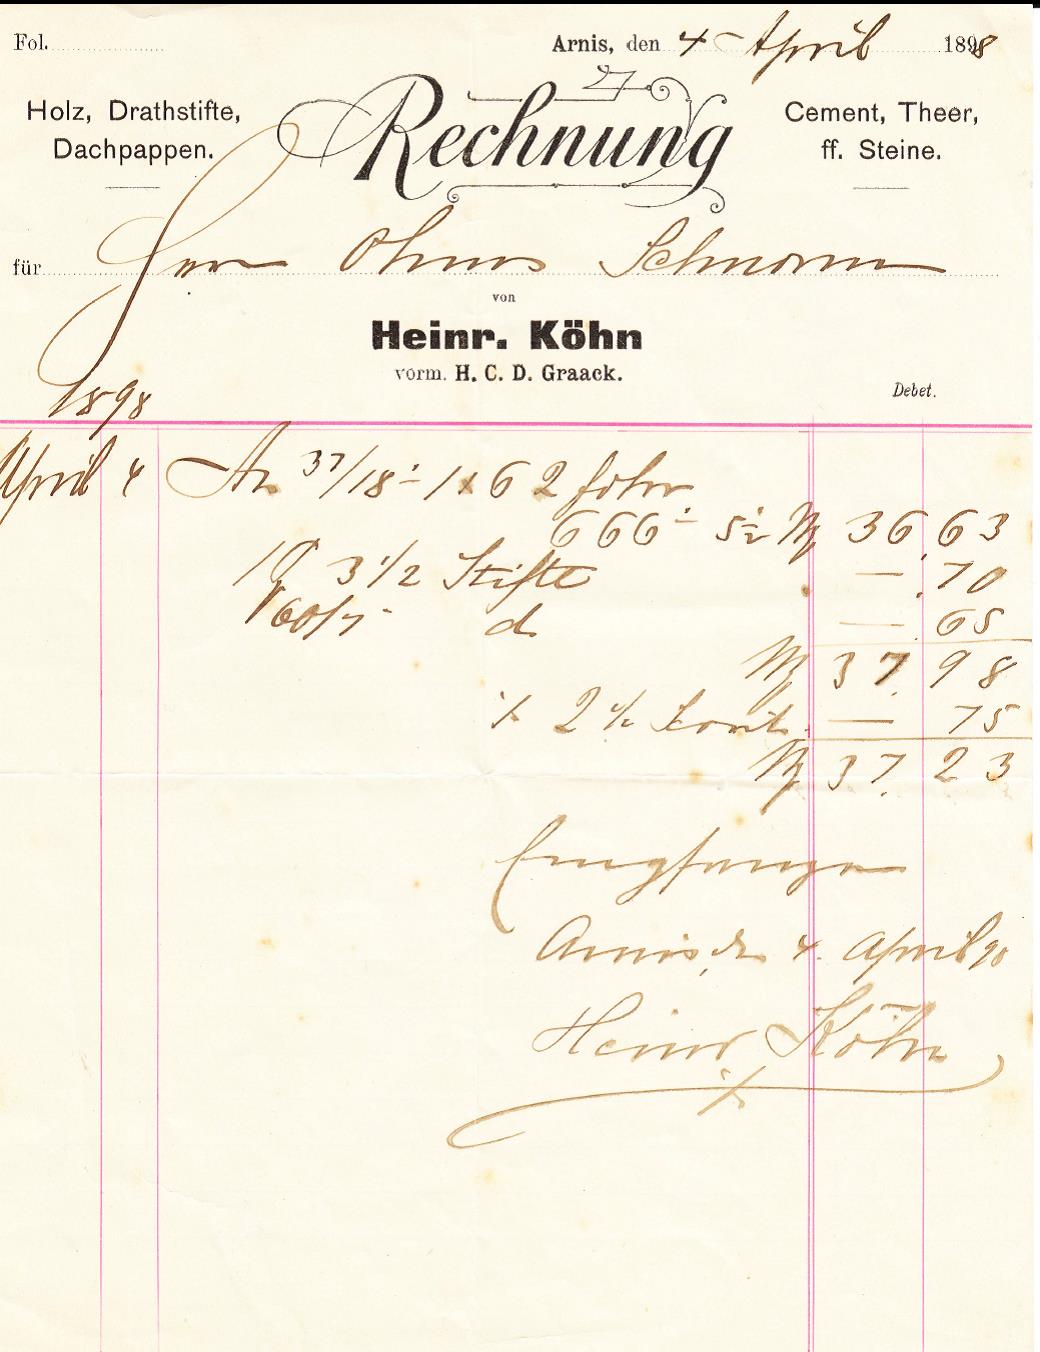 Fol.
Arnis, den 4 April 1898
Holz, Drathstifte,
Dachpappen.
Rechnung
Cement, Theer,
ff. Steine.
für Herrn
von
Heinr. Köhn
vorm. H. C. D. Graack.
Debet.
1898
April 4 An 37/18 1x6 2
666 36 63
3 1/2 Stifte — 70
60/7 d. — 65
M 37. 98
% 2 % — 75
M 37. 23
Empfangen
Arnis, den 4. April 98
Heinr Köhn